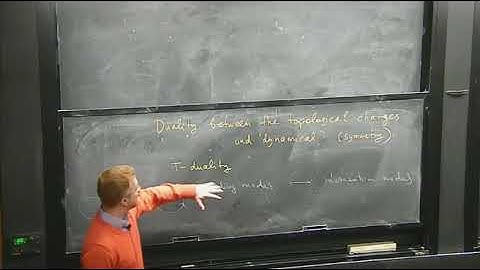 Duality between the topological charges
and "dynamical" (symmetry).
T-duality
modes → modes